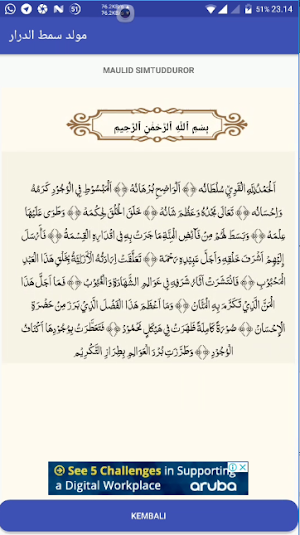 76.2KB/s
76.2KB/s
51% 23.14
مولد سمط الدرار
MAULID SIMTUDDUROR
بِسْمِ اللَّهِ الرَّحْمَٰنِ الرَّحِيمِ
اَلْحَمْدُ لِلّٰهِ الْقَوِيِّ سُلْطَانُه ﴿﴾ اَلْوَاضِحِ بُرْهَانُه ﴿﴾ اَلْمَبْسُوْطِ فِي الْوُجُوْدِ كَرَمُهُ
وَاِحْسَانُه ﴿﴾ تَعَالَى مَجْدُهُ وَعَظُمَ شَانُه ﴿﴾ خَلَقَ الْخَلْقَ لِحِكْمَة ﴿﴾ وَطَوَى عَلَيْهَا
عِلْمَه ﴿﴾ وَبَسَطَ لَهُمْ مِنْ فَآئِضِ الْمِنَّةِ مَا جَرَتْ بِهِ فِي اَقْدَارِهِ الْقِسْمَة ﴿﴾ فَاَرْسَلَ
اِلَيْهِمْ اَشْرَفَ خَلْقِهِ وَاَجَلَّ عَبِيْدِهِ رَحْمَة ﴿﴾ تَعَلَّقَتْ اِرَادَتُهُ الْاَزَلِيَّةُ بِخَلْقِ هٰذَا الْعَبْدِ
الْمَحْبُوْب ﴿﴾ فَانْتَشَرَتْ آثَارُ شَرَفِهِ فِي عَوَالِمِ الشَّهَادَةِ وَالْغُيُوْب ﴿﴾ فَمَا اَجَلَّ هٰذَا
الْمَنَّ الَّذِيْ تَكَرَّمَ بِهِ الْمَنَّان ﴿﴾ وَمَا اَعْظَمَ هٰذَا الْفَضْلَ الَّذِيْ بَرَزَ مِنْ حَضْرَةِ
الْاِحْسَان ﴿﴾ صُوْرَةً كَامِلَةً ظَهَرَتْ فِي هَيْكَلٍ مَحْمُوْد ﴿﴾ فَتَعَطَّرَتْ بِوُجُوْدِهَا اَكْنَافُ
الْوُجُوْد ﴿﴾ وَطَرَّزَتْ بُرْدَ الْعَوَالِمِ بِطِرَازِ التَّكْرِيْم
See 5 Challenges in Supporting
a Digital Workplace
aruba
KEMBALI